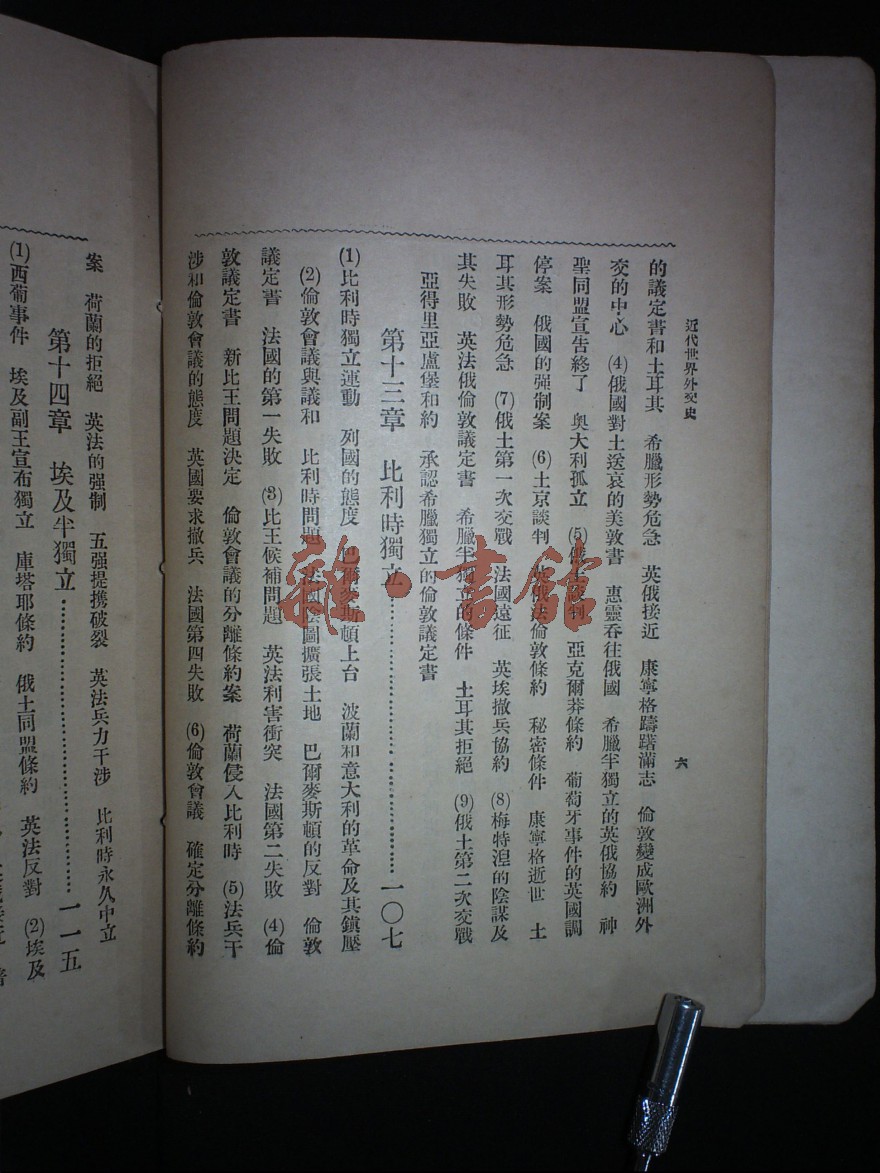 近代世界外交史
六
的議定書和土耳其 希臘形勢危急 英俄接近 康寧格躊躇滿志 倫敦變成歐洲外
交的中心 (4)俄國對土送哀的美敦書 惠靈吞往俄國 希臘半獨立的英俄協約 神
聖同盟宣告終了 奧大利孤立 (5)俄土談判 亞克爾莽條約 葡萄牙事件的英國調
停案 俄國的强制案 (6)土京談判 英俄法倫敦條約 秘密條件 康寧格逝世 土
耳其形勢危急 (7)俄土第一次交戰 法國遠征 英埃撤兵協約 (8)梅特涅的陰謀及
其失敗 英法俄倫敦議定書 希臘半獨立的條件 土耳其拒絕 (9)俄土第二次交戰
亞得里亞盧堡和約 承認希臘獨立的倫敦議定書
第十三章 比利時獨立……一〇七
(1)比利時獨立運動 列國的態度 巴爾麥斯頓上台 波蘭和意大利的革命及其鎮壓
(2)倫敦會議與議和 比利時問題 法國陰圖擴張土地 巴爾麥斯頓的反對 倫敦
議定書 法國的第一失敗 (3)比王候補問題 英法利害衝突 法國第二失敗 (4)倫
敦議定書 新比王問題決定 倫敦會議的分離條約案 荷蘭侵入比利時 (5)法兵干
涉和倫敦會議的態度 英國要求撤兵 法國第四失敗 (6)倫敦會議 確定分離條約
案 荷蘭的拒絕 英法的强制 五强提携破裂 英法兵力干涉 比利時永久中立
第十四章 埃及半獨立……一一五
(1)西葡事件 埃及副王宣布獨立 庫塔耶條約 俄土同盟條約 英法反對 (2)埃及
雜·書館